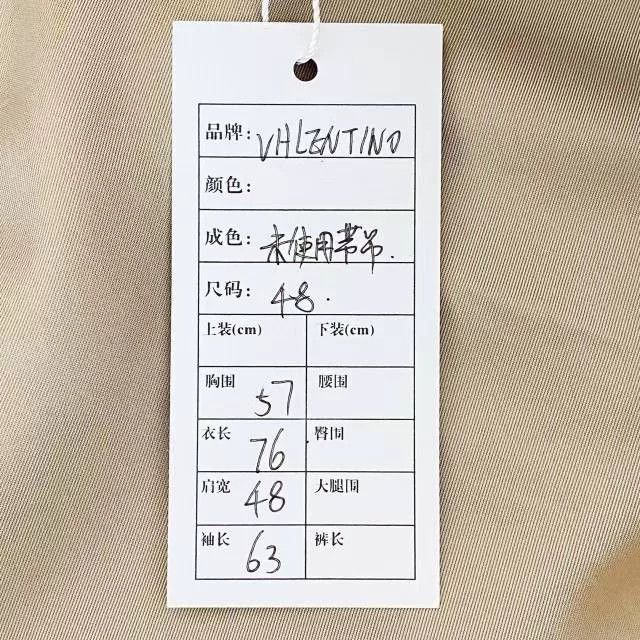 品牌: VALENTINO
颜色:
成色: 未使用带吊.
尺码: 48.
上装(cm) 下装(cm)
胸围 57 腰围
衣长 76 臀围
肩宽 48 大腿围
袖长 63 裤长